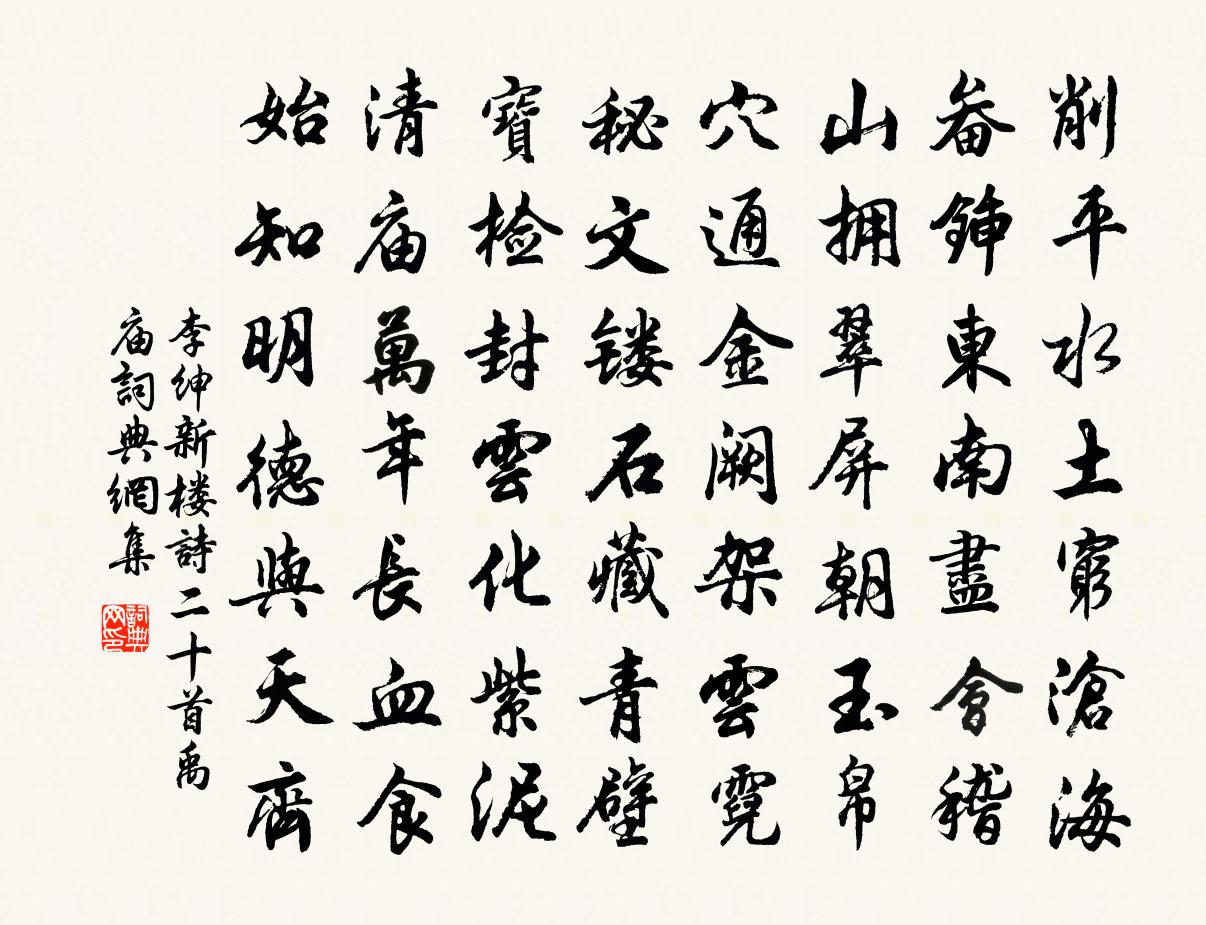 削平水土窮滄海
畚鍤東南盡會稽
山拥翠屏朝玉帛
穴通金阙架雲霓
秘文镂石藏青壁
寶检封雲化紫泥
清庙萬年長血食
始知明德與天齊
李绅新楼詩二十首禹
庙詞典網集
詞典
网印